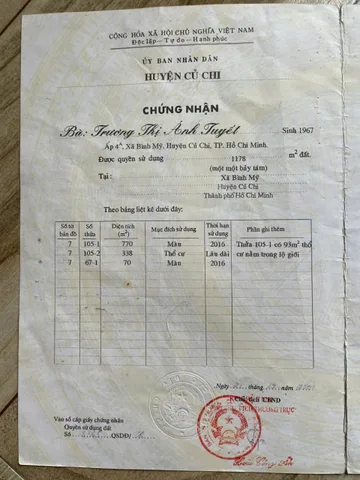 CỘNG HÒA XÃ HỘI CHỦ NGHĨA VIỆT NAM
Độc lập – Tự do – Hạnh phúc
ỦY BAN NHÂN DÂN
HUYỆN CỦ CHI
CHỨNG NHẬN
Bà: Trương Thị Ánh Tuyết Sinh 1967
Ấp 4A, Xã Bình Mỹ, Huyện Củ Chi, TP. Hồ Chí Minh.
Được quyền sử dụng 1178 m2 đất.
(một một bảy tám)
Tại : Xã Bình Mỹ
Huyện Củ Chi
Thành phố Hồ Chí Minh
Theo bảng liệt kê dưới đây:
Số tờ bản đồ Số thửa Diện tích (m2) Mục đích sử dụng Thời hạn sử dụng Phần ghi thêm
7 105-1 770 Màu 2016 Thửa 105-1 có 93m2 thổ
7 105-2 338 Thổ cư Lâu dài cư nằm trong lộ giới
7 67-1 70 Màu 2016
Ngày tháng năm
CHỦ TỊCH UBND
Vào sổ cấp giấy chứng nhận
Quyền sử dụng đất
Số QSDĐ/